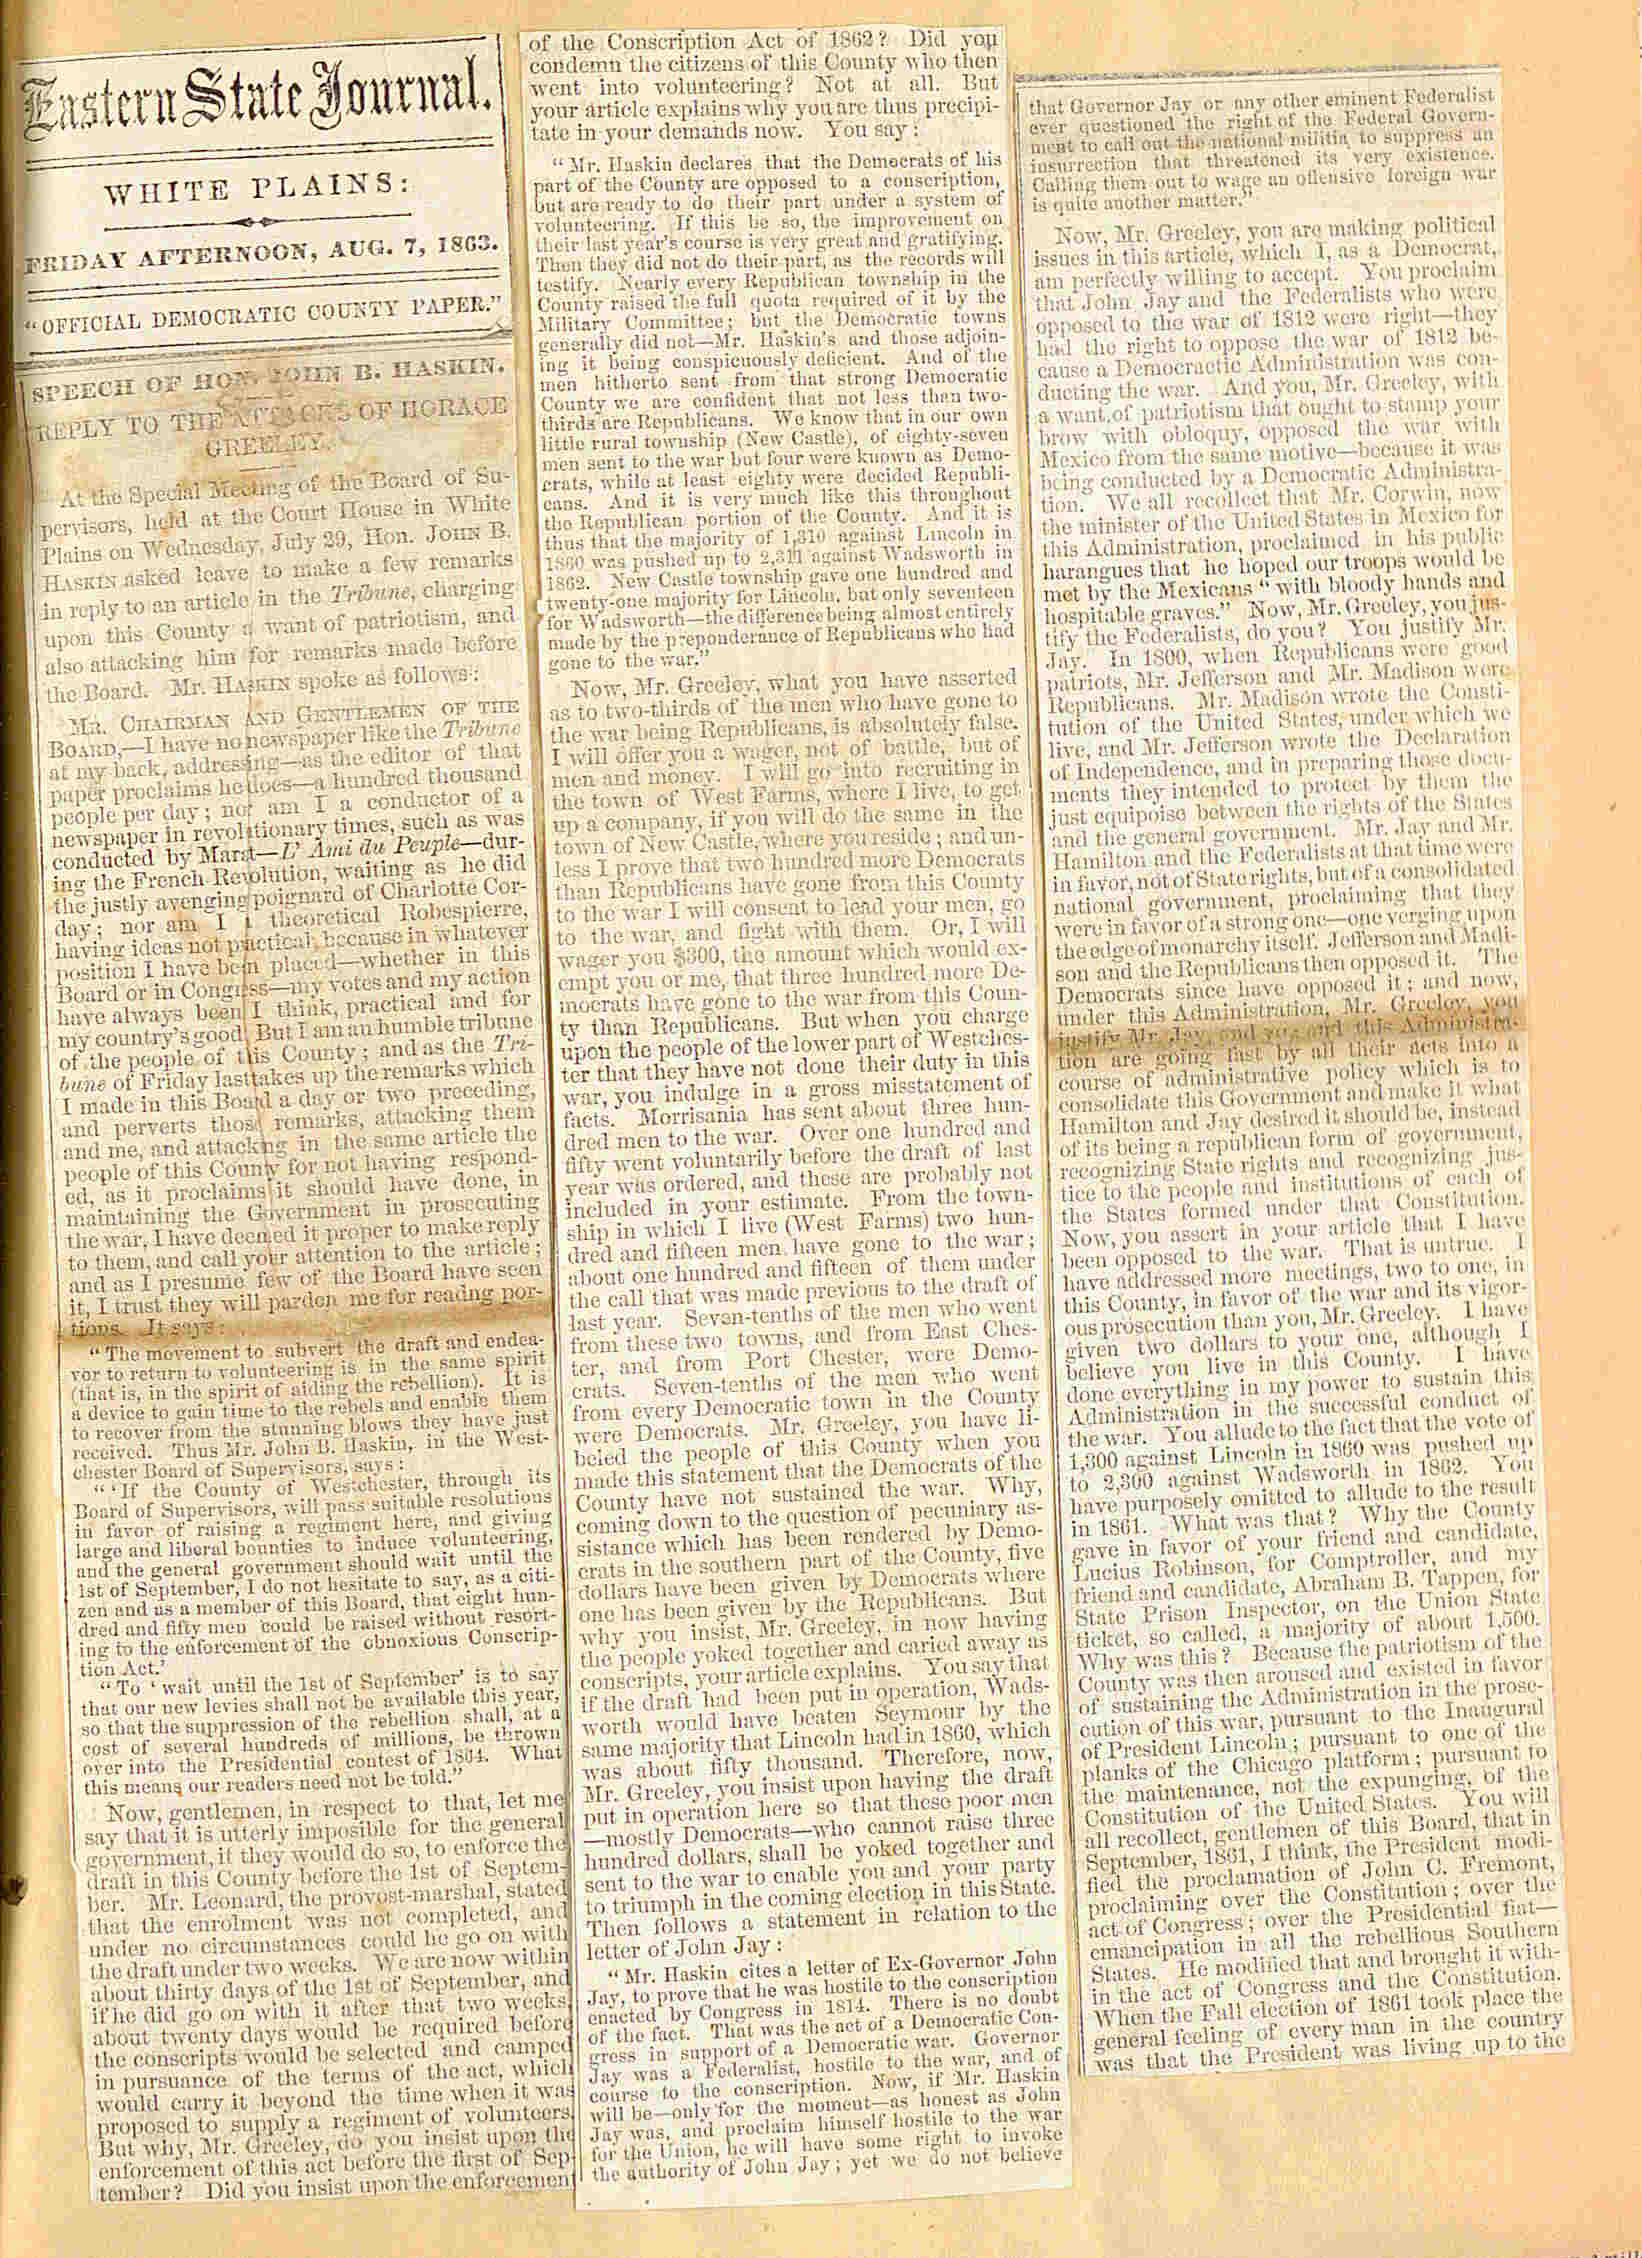 Eastern State Journal.
WHITE PLAINS:
FRIDAY AFTERNOON, AUG. 7, 1863.
"OFFICIAL DEMOCRATIC COUNTY PAPER."
SPEECH OF HON. JOHN B. HASKIN.
REPLY TO THE ATTACKS OF HORACE
GREELEY.
At the Special Meeting of the Board of Su-
pervisors, held at the Court House in White
Plains on Wednesday, July 29, Hon. JOHN B.
HASKIN asked leave to make a few remarks
in reply to an article in the Tribune, charging
upon this County a want of patriotism, and
also attacking him for remarks made before
the Board. Mr. HASKIN spoke as follows:
MR. CHAIRMAN AND GENTLEMEN OF THE
BOARD,—I have no newspaper like the Tribune
at my back, addressing—as the editor of that
paper proclaims he does—a hundred thousand
people per day; nor am I a conductor of a
newspaper in revolutionary times, such as was
conducted by Marat—L' Ami du Peuple—dur-
ing the French Revolution, waiting as he did
the justly avenging poignard of Charlotte Cor-
day; nor am I a theoretical Robespierre,
having ideas not practical, because in whatever
position I have been placed—whether in this
Board or in Congress—my votes and my action
have always been, I think, practical and for
my country's good. But I am an humble tribune
of the people of this County; and as the Tri-
bune of Friday last takes up the remarks which
I made in this Board a day or two preceding,
and perverts those remarks, attacking them
and me, and attacking in the same article the
people of this County for not having respond-
ed, as it proclaims it should have done, in
maintaining the Government in prosecuting
the war, I have deemed it proper to make reply
to them, and call your attention to the article;
and as I presume few of the Board have seen
it, I trust they will pardon me for readng por-
tions. It says:
"The movement to subvert the draft and endea-
vor to return to volunteering is in the same spirit
(that is, in the spirit of aiding the rebellion). It is
a device to gain time to the rebels and enable them
to recover from the stunning blows they have just
received. Thus Mr. John B. Haskin, in the West-
chester Board of Supervisors, says:
"'If the County of Westchester, through its
Board of Supervisors, will pass suitable resolutions
in favor of raising a regiment here, and giving
large and liberal bounties to induce volunteering,
and the general government should wait until the
1st of September, I do not hesitate to say, as a citi-
zen and as a member of this Board, that eight hun-
dred and fifty men could be raised without resort-
ing to the enforcement of the obnoxious Conscrip-
tion Act.'
"To 'wait until the 1st of September' is to say
that our new levies shall not be available this year,
so that the suppression of the rebellion shall, at a
cost of several hundreds of millions, be thrown
over into the Presidential contest of 1864. What
this means our readers need not be told."
Now, gentlemen, in respect to that, let me
say that it is utterly imposible for the general
government, if they would do so, to enforce the
draft in this County before the 1st of Septem-
ber. Mr. Leonard, the provost-marshal, stated
that the enrolment was not completed, and
under no circumstances could he go on with
the draft under two weeks. We are now within
about thirty days of the 1st of September, and
if he did go on with it after that two weeks,
about twenty days would be required before
the conscripts would be selected and camped
in pursuance of the terms of the act, which
would carry it beyond the time when it was
proposed to supply a regiment of volunteers.
But why, Mr. Greeley, do you insist upon the
enforcement of this act before the first of Sep-
tember? Did you insist upon the enforcement
of the Conscription Act of 1862? Did you
condemn the citizens of this County who then
went into volunteering? Not at all. But
your article explains why you are thus precipi-
tate in your demands now. You say:
"Mr. Haskin declares that the Democrats of his
part of the County are opposed to a conscription,
but are ready to do their part under a system of
volunteering. If this be so, the improvement on
their last year's course is very great and gratifying.
Then they did not do their part, as the records will
testify. Nearly every Republican township in the
County raised the full quota required of it by the
Military Committee; but the Democratic towns
generally did not—Mr. Haskin's and those adjoin-
ing it being conspicuously deficient. And of the
men hitherto sent from that strong Democratic
County we are confident that not less than two-
thirds are Republicans. We know that in our own
little rural township (New Castle), of eighty-seven
men sent to the war but four were known as Demo-
crats, while at least eighty were decided Republi-
cans. And it is very much like this throughout
the Republican portion of the County. And it is
thus that the majority of 1,310 against Lincoln in
1860 was pushed up to 2,311 against Wadsworth in
1862. New Castle township gave one hundred and
twenty-one majority for Lincoln, but only seventeen
for Wadsworth—the difference being almost entirely
made by the preponderance of Republicans who had
gone to the war."
Now, Mr. Greeley, what you have asserted
as to two-thirds of the men who have gone to
the war being Republicans, is absolutely false.
I will offer you a wager, not of battle, but of
men and money. I will go into recruiting in
the town of West Farms, where I live, to get
up a company, if you will do the same in the
town of New Castle, where you reside; and un-
less I prove that two hundred more Democrats
than Republicans have gone from this County
to the war I will consent to lead your men, go
to the war, and fight with them. Or, I will
wager you $300, the amount which would ex-
empt you or me, that three hundred more De-
mocrats have gone to the war from this Coun-
ty than Republicans. But when you charge
upon the people of the lower part of Westches-
ter that they have not done their duty in this
war, you indulge in a gross misstatement of
facts. Morrisania has sent about three hun-
dred men to the war. Over one hundred and
fifty went voluntarily before the draft of last
year was ordered, and these are probably not
included in your estimate. From the town-
ship in which I live (West Farms) two hun-
dred and fifteen men have gone to the war;
about one hundred and fifteen of them under
the call that was made previous to the draft of
last year. Seven-tenths of the men who went
from these two towns, and from East Ches-
ter, and from Port Chester, were Demo-
crats. Seven-tenths of the men who went
from every Democratic town in the County
were Democrats. Mr. Greeley, you have li-
beled the people of this County when you
made this statement that the Democrats of the
County have not sustained the war. Why,
coming down to the question of pecuniary as-
sistance which has been rendered by Demo-
crats in the southern part of the County, five
dollars have been given by Democrats where
one has been given by the Republicans. But
why you insist, Mr. Greeley, in now having
the people yoked together and caried away as
conscripts, your article explains. You say that
if the draft had been put in operation, Wads-
worth would have beaten Seymour by the
same majority that Lincoln had in 1860, which
was about fifty thousand. Therefore, now,
Mr. Greeley, you insist upon having the draft
put in operation here so that these poor men
—mostly Democrats—who cannot raise three
hundred dollars, shall be yoked together and
sent to the war to enable you and your party
to triumph in the coming election in this State.
Then follows a statement in relation to the
letter of John Jay:
"Mr. Haskin cites a letter of Ex-Governor John
Jay, to prove that he was hostile to the conscription
enacted by Congress in 1814. There is no doubt
of the fact. That was the act of a Democratic Con-
gress in support of a Democratic war. Governor
Jay was a Federalist, hostile to the war, and of
course to the conscription. Now, if Mr. Haskin
will be—only for the moment—as honest as John
Jay was, and proclaim himself hostile to the war
for the Union, he will have some right to invoke
the authority of John Jay; yet we do not believe
that Governor Jay or any other eminent Federalist
ever questioned the right of the Federal Govern-
ment to call out the national militia to suppress an
insurrection that threatened its very existence.
Calling them out to wage an offensive foreign war
is quite another matter."
Now, Mr. Greeley, you are making political
issues in this article, which I, as a Democrat,
am perfectly willing to accept. You proclaim
that John Jay and the Federalists who were
opposed to the war of 1812 were right—they
had the right to oppose the war of 1812 be-
cause a Democractic Administration was con-
ducting the war. And you, Mr. Greeley, with
a want of patriotism that ought to stamp your
brow with obloquy, opposed the war with
Mexico from the same motive—because it was
being conducted by a Democratic Administra-
tion. We all recollect that Mr. Corwin, now
the minister of the United States in Mexico for
this Administration, proclaimed in his public
harangues that he hoped our troops would be
met by the Mexicans "with bloody hands and
hospitable graves." Now, Mr. Greeley, you jus-
tify the Federalists, do you? You justify Mr.
Jay. In 1800, when Republicans were good
patriots, Mr. Jefferson and Mr. Madison were
Republicans. Mr. Madison wrote the Consti-
tution of the United States, under which we
live, and Mr. Jefferson wrote the Declaration
of Independence, and in preparing those docu-
ments they intended to protect by them the
just equipoise between the rights of the States
and the general government. Mr. Jay and Mr.
Hamilton and the Federalists at that time were
in favor, not of State rights, but of a consolidated
national government, proclaiming that they
were in favor of a strong one—one verging upon
the edge of monarchy itself. Jefferson and Madi-
son and the Republicans then opposed it. The
Democrats since have opposed it; and now,
under this Administration, Mr. Greeley, you
justify Mr. Jay, and you and this Administra-
tion are going fast by all their acts into a
course of administrative policy which is to
consolidate this Government and make it what
Hamilton and Jay desired it should be, instead
of its being a republican form of government,
recognizing State rights and recognizing jus-
tice to the people and institutions of each of
the States formed under that Constitution.
Now, you assert in your article that I have
been opposed to the war. That is untrue. I
have addressed more meetings, two to one, in
this County, in favor of the war and its vigor-
ous prosecution than you, Mr. Greeley. I have
given two dollars to your one, although I
believe you live in this County. I have
done everything in my power to sustain this
Administration in the successful conduct of
the war. You allude to the fact that the vote of
1,300 against Lincoln in 1860 was pushed up
to 2,300 against Wadsworth in 1862. You
have purposely omitted to allude to the result
in 1861. What was that? Why the County
gave in favor of your friend and candidate,
Lucius Robinson, for Comptroller, and my
friend and candidate, Abraham B. Tappen, for
State Prison Inspector, on the Union State
ticket, so called, a majority of about 1,500.
Why was this? Because the patriotism of the
County was then aroused and existed in favor
of sustaining the Administration in the prose-
cution of this war, pursuant to the Inaugural
of President Lincoln; pursuant to one of the
planks of the Chicago platform; pursuant to
the maintenance, not the expunging, of the
Constitution of the United States. You will
all recollect, gentlemen of this Board, that in
September, 1861, I think, the President modi-
fied the proclamation of John C. Fremont,
proclaiming over the Constitution; over the
act of Congress; over the Presidential fiat—
emancipation in all the rebellious Southern
States. He modified that and brought it with-
in the act of Congress and the Constitution.
When the Fall election of 1861 took place the
general feeling of every man in the country
was that the President was living up to the